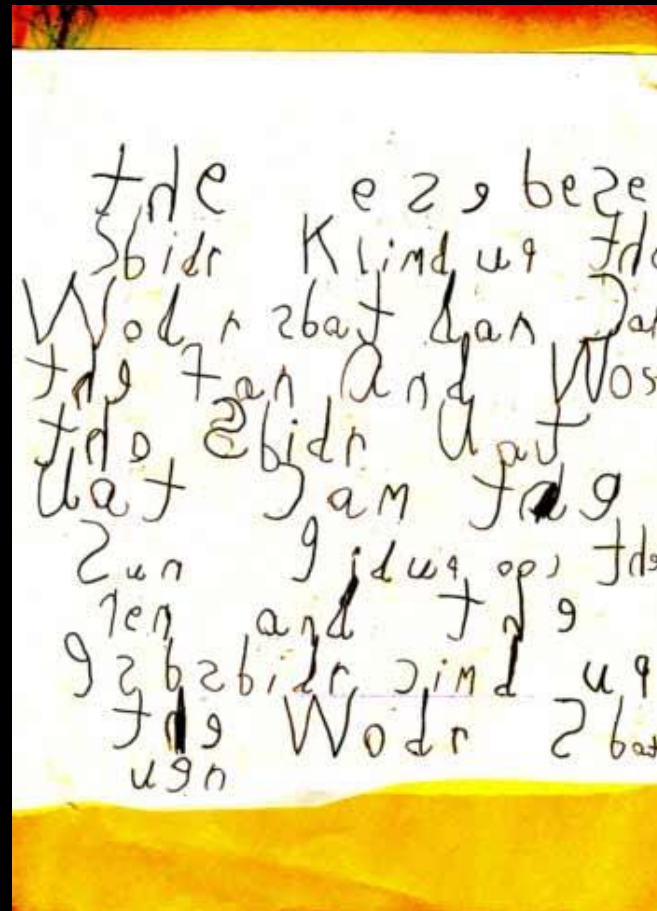 the ese bese
Sbidr Klimd up the
Wodr sbat dan Jan
the ran And Wos
the Sbidr Uat
Uat Jam the
Sun 9idup ool the
ren and the
esbsbidr cimd up
the Wodr Sbat
uen